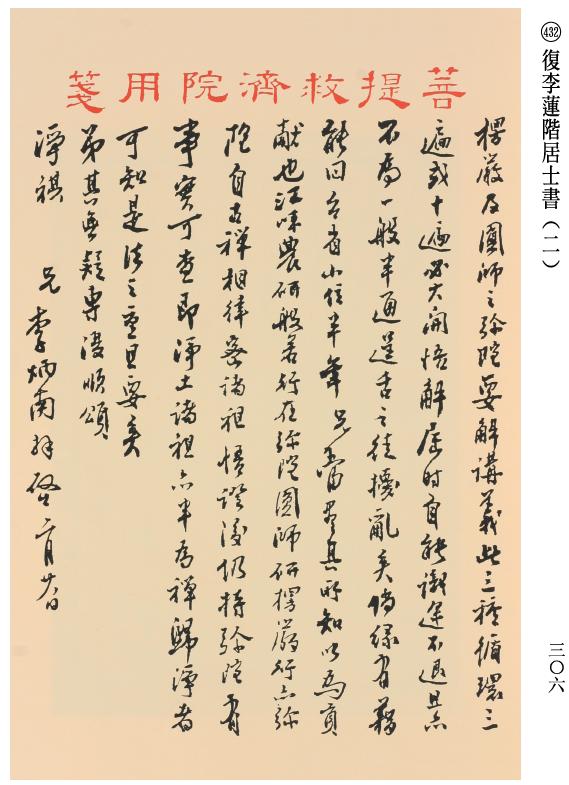 ㊷復李蓮階居士書（二）
三〇六
菩提救濟院用箋
楞嚴及圓師之彌陀要解講義此三種循環三
遍或十遍必大開悟解屆時自能漸進不退且亦
不為一般半通逞舌之徒擾亂矣倘緣有藉
能回台省小住半年兄當罄其所知以為貢
獻也江味農研般若行在彌陀圓師研楞嚴行亦彌
陀自古禪相律密諸祖悟證後仍持彌陀有
事實可查即淨土諸祖亦半為禪歸淨者
可知是法之重且要矣
弟其無疑專復順頌
淨祺
兄李炳南拜啟